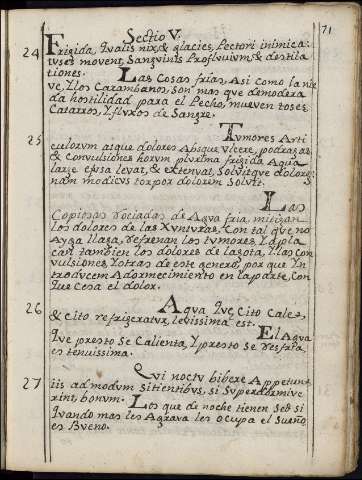 71
Sectio V.
24 Frigida, Qvalis nix, & glacies, Pectori inimica:
tvses movent, Sangvinis Proflvivivm, & destila
tiones. Las Cosas frias, Asi Como la nie
ve, Y los Carambanos, son mas que demodera
da hostilidad para el Pecho, mueven toses
Catarros, Y flvxos de Sangre.
25 Tvmores Arti
cvlorvm atque dolores Absque vlcere, podragas
& Convulsiones horvm plvrima frigida Aqua
large efvsa levat, & extenvat, Solvitque dolore
nam modicvs torpor dolorem Solvit.
Las
Copiosas Rociadas de Agva fria, mitigan
los dolores de las Xvntvras, Con tal que no
Ayga llaga, Refrenan los tvmores, Y apla
can tambien los dolores de la gota, Y las Con
vulsiones, Y otras de este genero, por que Yn
trodvcen Adormecimiento en la parte, Con
que Cesa el dolor.
26 Aqva Qve Cito Cales,
& cito refrigeratvr, levissima est.
El Agva
Qve presto Se Calienta, Y presto Se Resfria
es tenvissima.
27 Qvi noctv bibere Appetvnt
iis admodvm Sitientibvs, si Svperdormive
rint, bonvm. Los que de noche tienen Sed si
Qvando mas les Agrava les ocupa el Sueño
es Bveno.